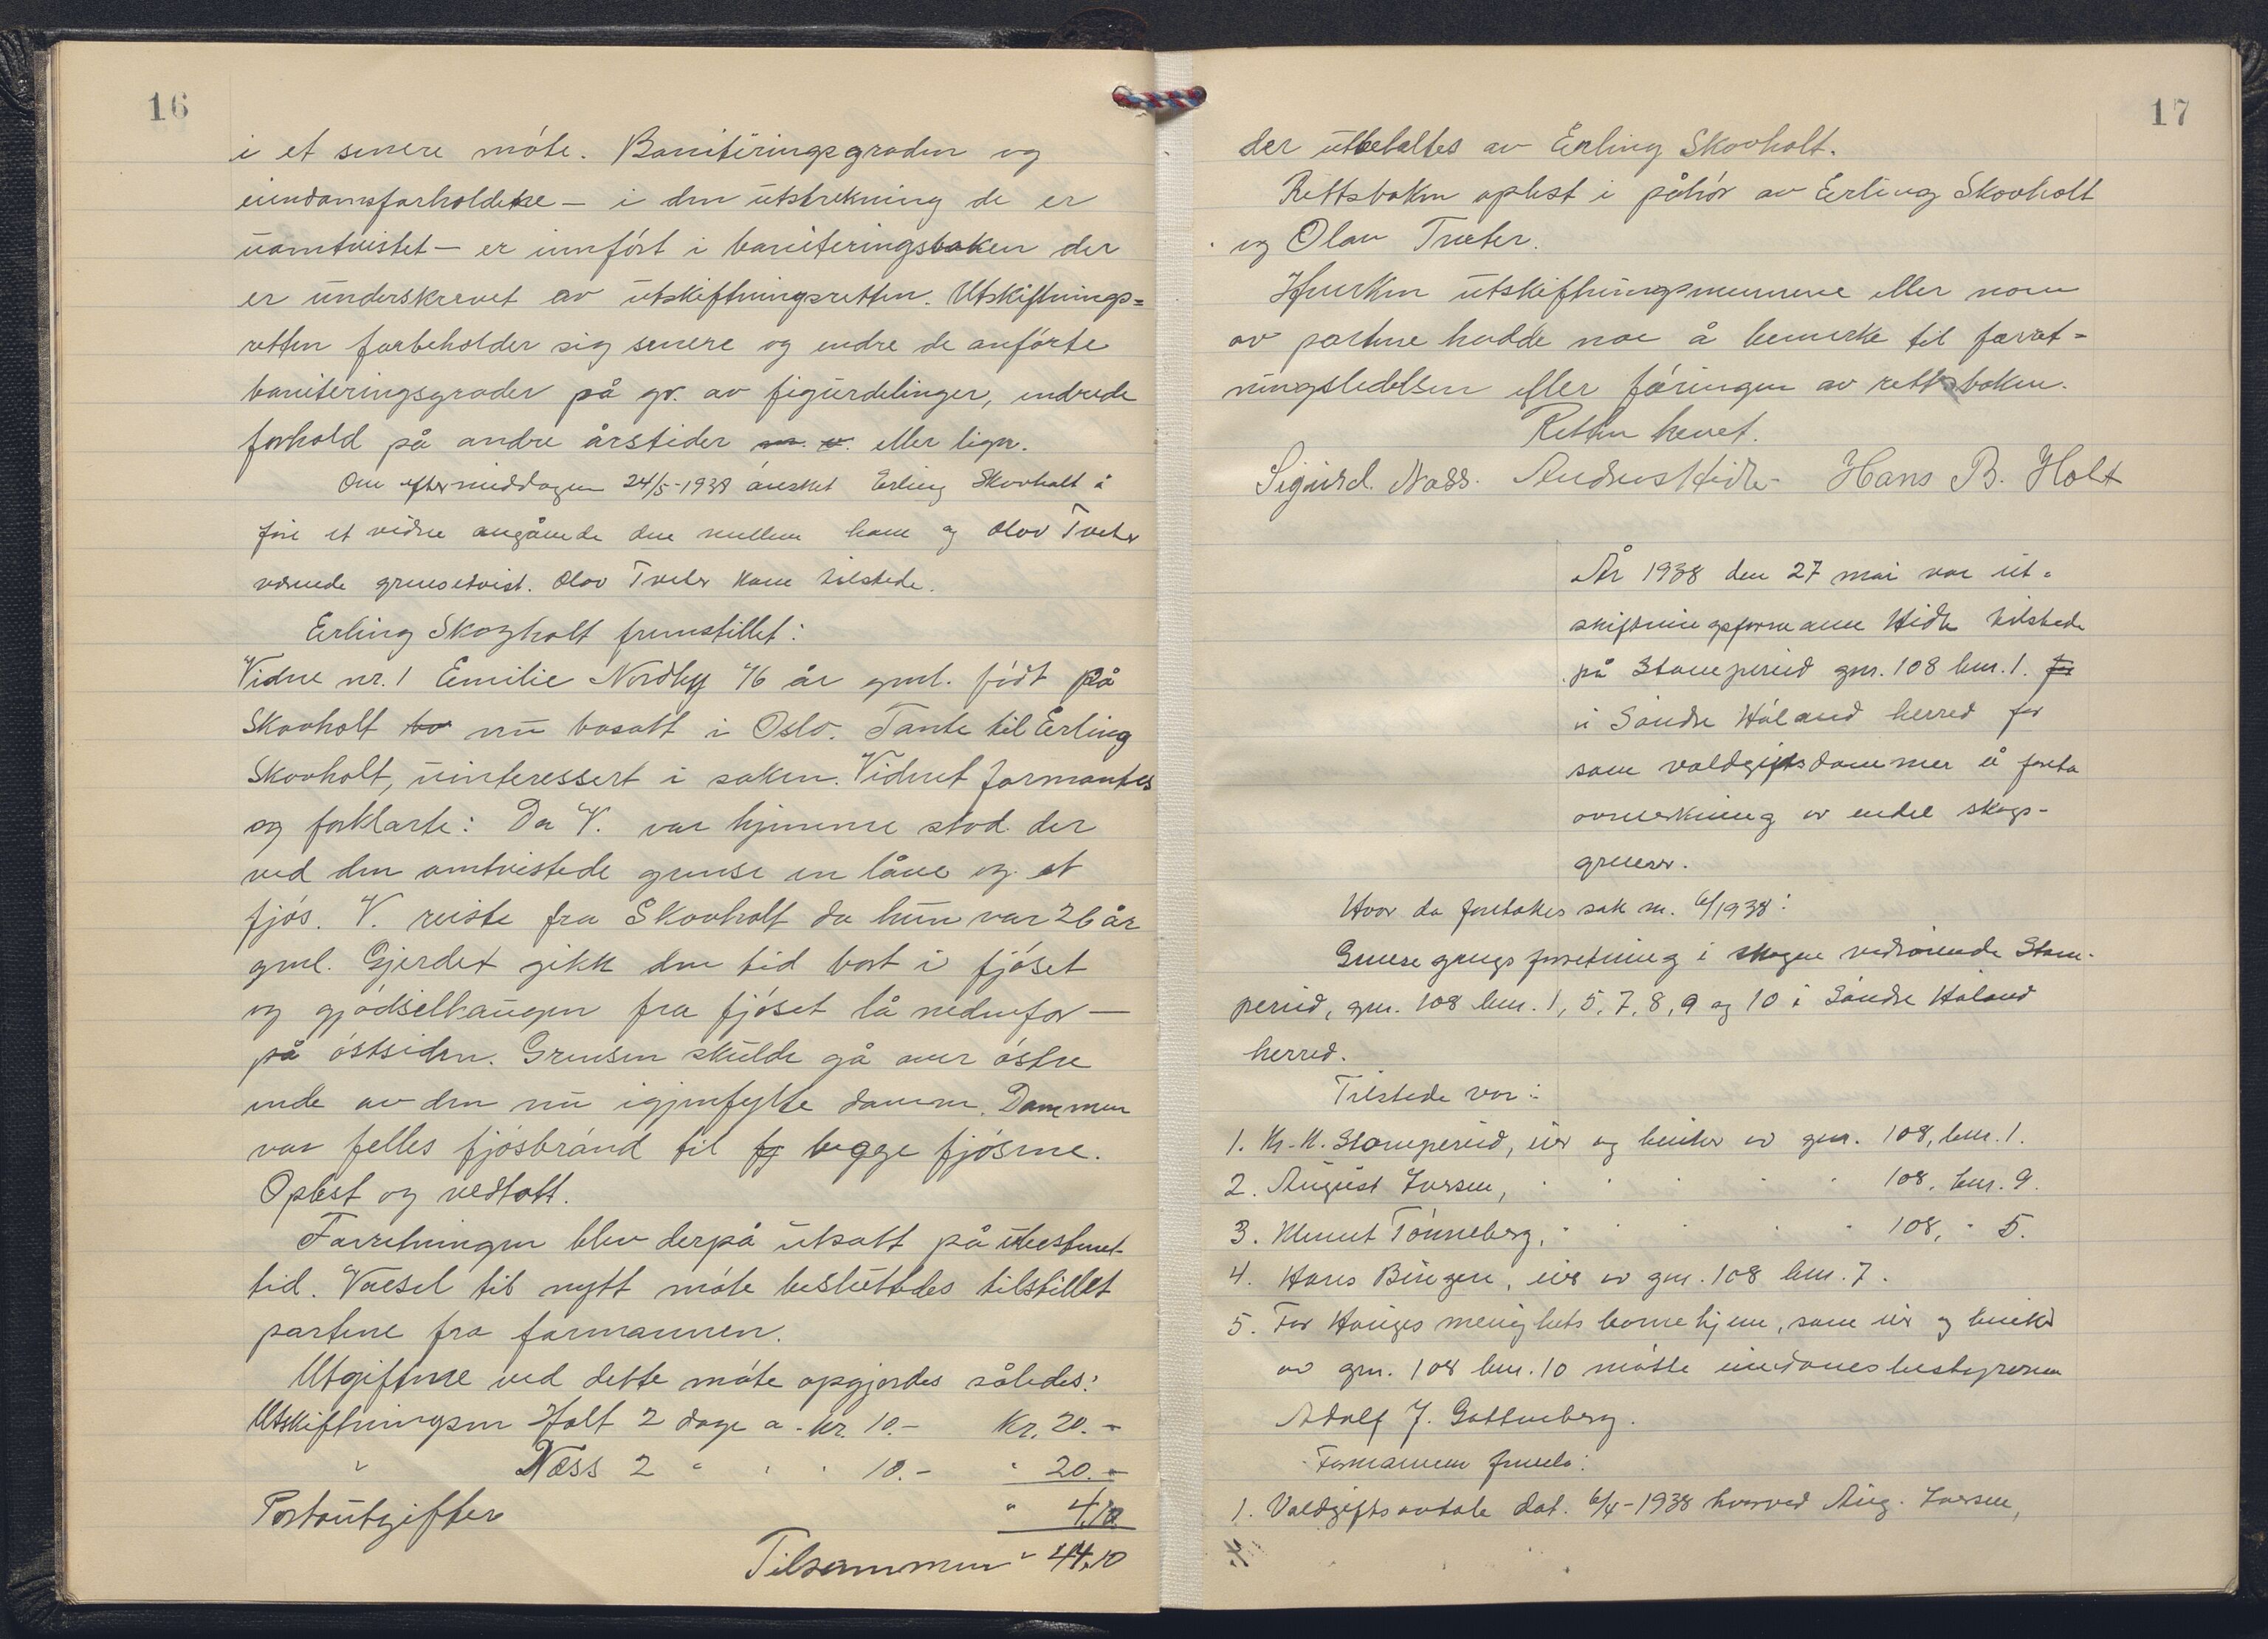 16
i et senere möte. Boniteringsgraden og
eiendomsforholdene – i den utstrekning de er
uomtvistet – er innfört i boniteringsboken der
er underskrevet av utskiftningsretten. Utskiftnings=
retten forbeholder sig senere og endre de anförte
boniteringsgrader på gr. av figurdelinger, endrede
forhold på andre årstider m. v. eller lign.
Om eftermiddagen 24/5-1938 ønsket Erling Skovholt å
före et vidne angående den mellem ham og Olav Tveter
værende grensetvist. Olav Tveter kom tilstede.
Erling Skogholt fremstillet:
Vidne nr. 1 Emilie Nordby 76 år gml. födt på
Skovholt bo nu bosatt i Oslo. Tante til Erling
Skovholt, uinteressert i saken. Vidnet formantes
og forklarte: Da V. var hjemme stod der
ved den omtvistede grense en låve og et
fjös. V. reiste fra Skovholt da hun var 26 år
gml. Gjerdet gikk den tid bort i fjöset
og gjödselhaugen fra fjöset lå nedenfor –
på östsiden. Grensen skulde gå over östre
ende av den nu igjenfylte dam. Dammen
var felles fjösbrönd til fj begge fjösene.
Oplest og vedtatt.
Forretningen blev derpå utsatt på ubestemt
tid. Varsel til nytt möte besluttedes tilstillet
partene fra formannen.
Utgiftene ved dette möte opgjordes således:
Utskiftningsm Holt 2 dage a. kr. 10.– Kr. 20.–
" Næss 2 " " " 10.– " 20.–
Portoutgifter " 4.10
Tilsammen " 44,10
17
der utbetaltes av Erling Skovholt.
Rettsboken oplest i påhör av Erling Skovholt
og Olav Tveter.
Hverken utskiftningsmennene eller noen
av partene hadde noe å bemerke til forret=
ningsledelsen eller föringen av rettsboken.
Retten hevet.
Sigurd. Næss. Andreas Hidle Hans B. Holt
År 1938 den 27 mai var ut=
skiftningsformann Hidle tilstede
på Stomperud gnr. 108 bnr. 1. for
i Söndre Höland herred for
som voldgiftsdommer å foreta
opmerkning av endel skogs-
grenser.
Hvor da foretokes sak nr. 6/1938:
Grensegangsforretning i skogen vedrörende Stom-
perud, gnr. 108 bnr. 1, 5, 7, 8, 9 og 10 i Söndre Höland
herred.
Tilstede var:
1. Kr. K. Stomperud, eier og bruker av gnr. 108, bnr. 1.
2. August Iversen, " " " " " 108, bnr. 9.
3. Klemet Tönneberg, " " " " " 108, " 5.
4. Hans Bungen, eier av gnr. 108 bnr. 7.
5. For Hauges menighets barnehjem, som eier og bruker
av gnr. 108 bnr. 10 mötte eiendomsbestyreren
Adolf J. Gottenberg.
Formannen fremla:
1. Voldgiftsavtale dat. 6/4-1938 hvorved Aug. Iversen,